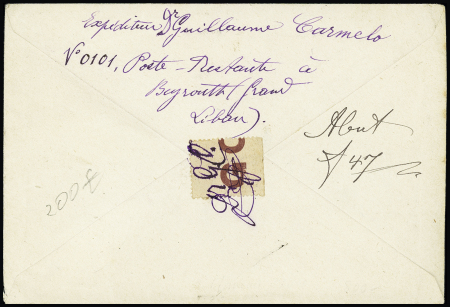 Expéditeur Dr Guillaume Carmelo
N° 0101, Poste-Restante à
Beyrouth (Grand
Liban).
f 47
200 f